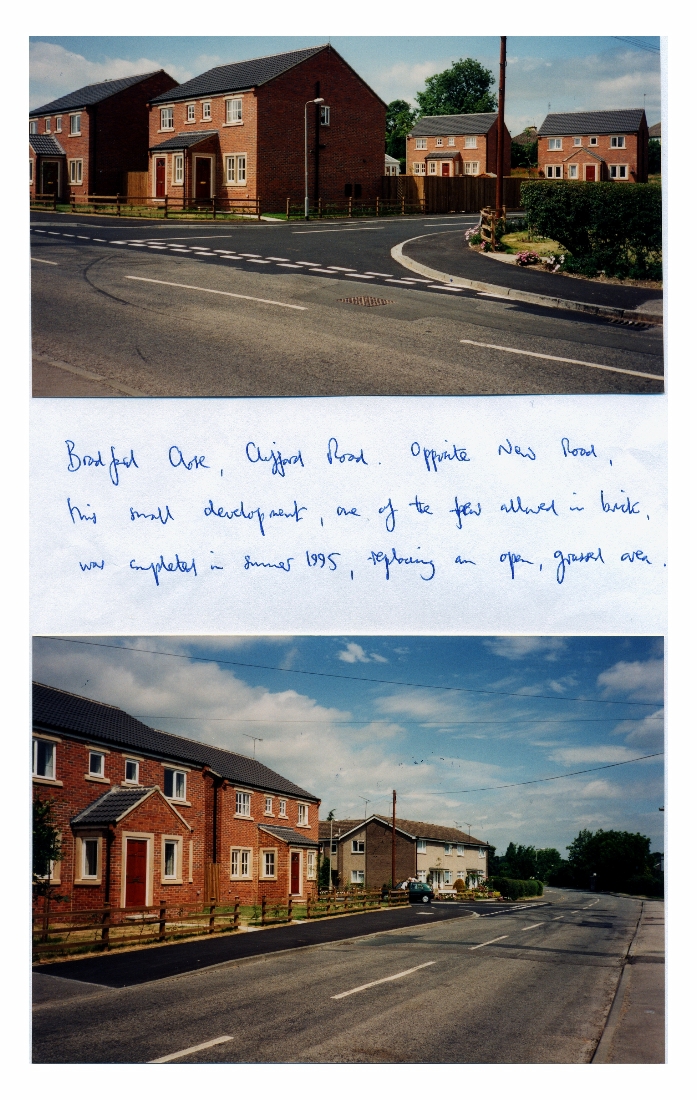 Bradford Close, Clifford Road. Opposite New Road,
this small development, one of the few allowed in brick,
was completed in summer 1995, replacing an open, grassed area.